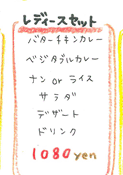 レディースセット
バターチキンカレー
ベジタブルカレー
ナン or ライス
サラダ
デザート
ドリンク
1080yen